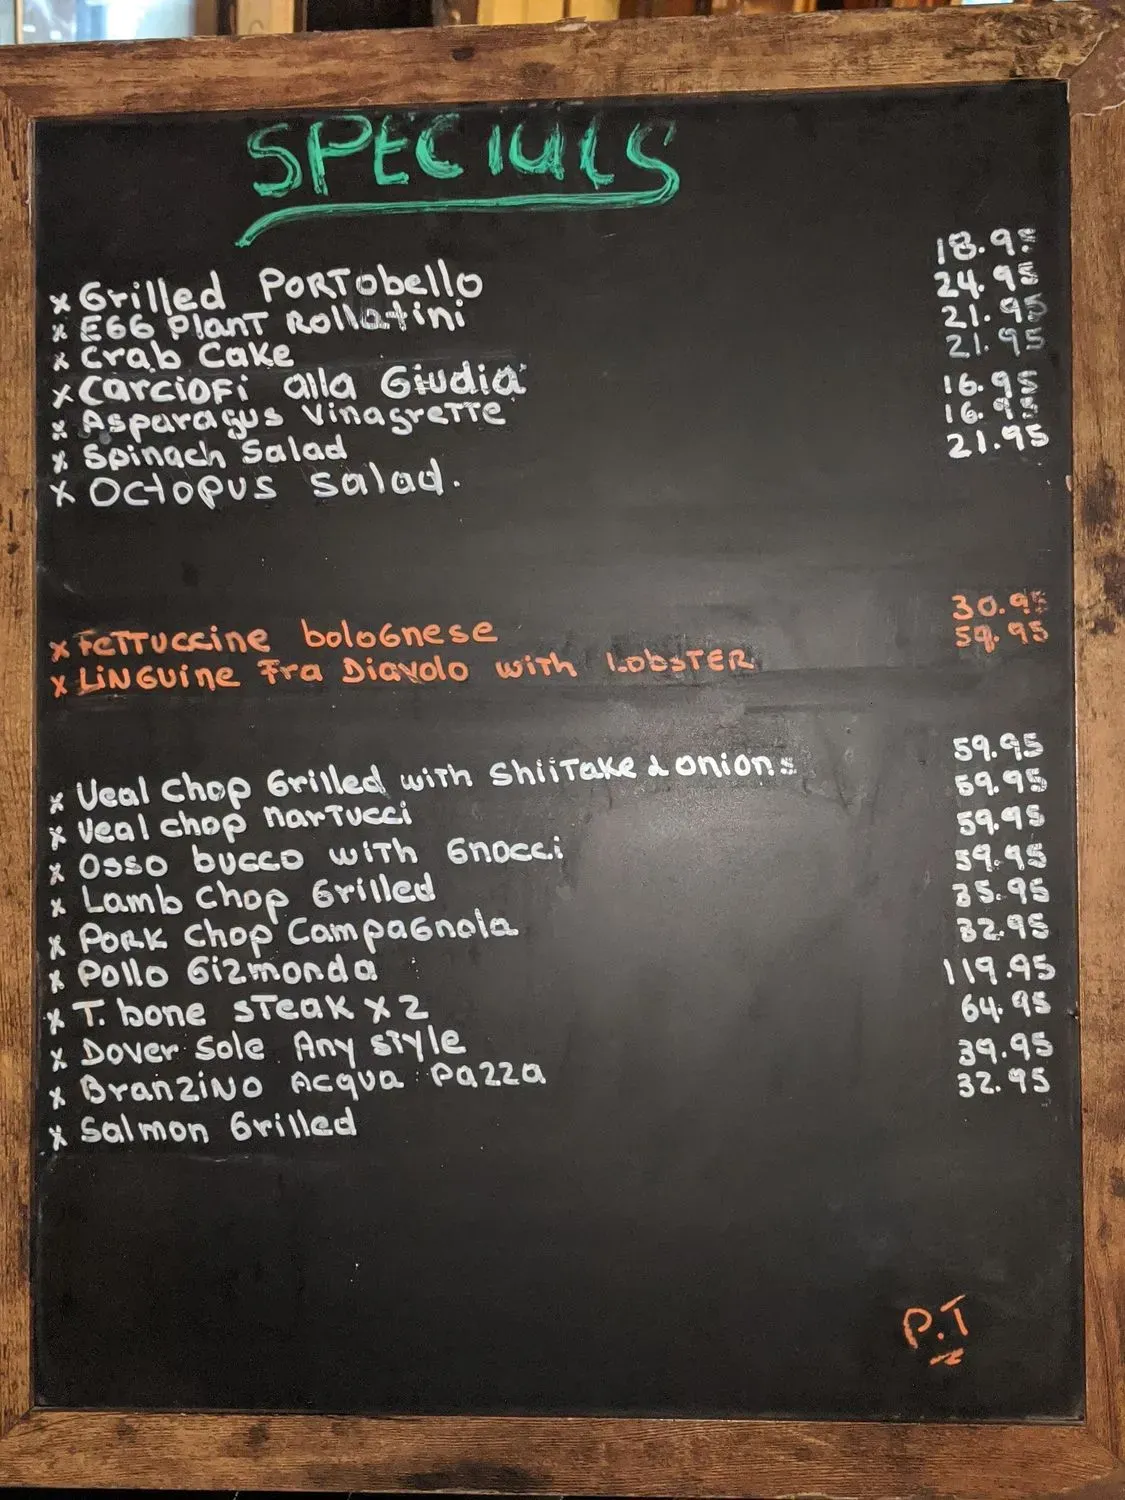 SPECIALS
x Grilled Portobello 18.95
x Egg Plant Rollatini 24.95
x Crab Cake 21.95
x Carciofi alla Giudia 21.95
x Asparagus Vinagrette 16.95
x Spinach Salad 16.95
x Octopus Salad. 21.95
x Fettuccine bolognese 30.95
x Linguine Fra Diavolo with Lobster 59.95
x Veal Chop Grilled with Shiitake & onions 59.95
x Veal chop Martucci 59.95
x Osso bucco with Gnocci 59.95
x Lamb Chop Grilled 59.95
x Pork Chop Campagnola 35.95
x Pollo Gizmonda 32.95
x T. bone steak x 2 119.95
x Dover Sole Any style 64.95
x Branzino Acqua Pazza 39.95
x Salmon Grilled 32.95
P.T